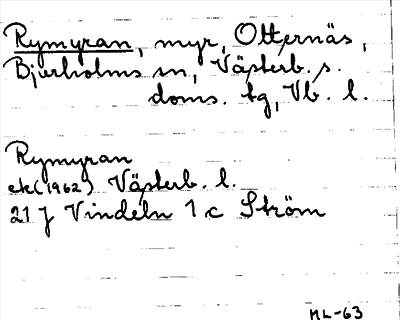 Rymyran, myr, Otternäs,
Bjurholms sn, Västerb. s.
doms. tg, Vb. l.
Rymyran
ek(1962) Västerb. l.
21 J Vindeln 1 c Ström
ML-63